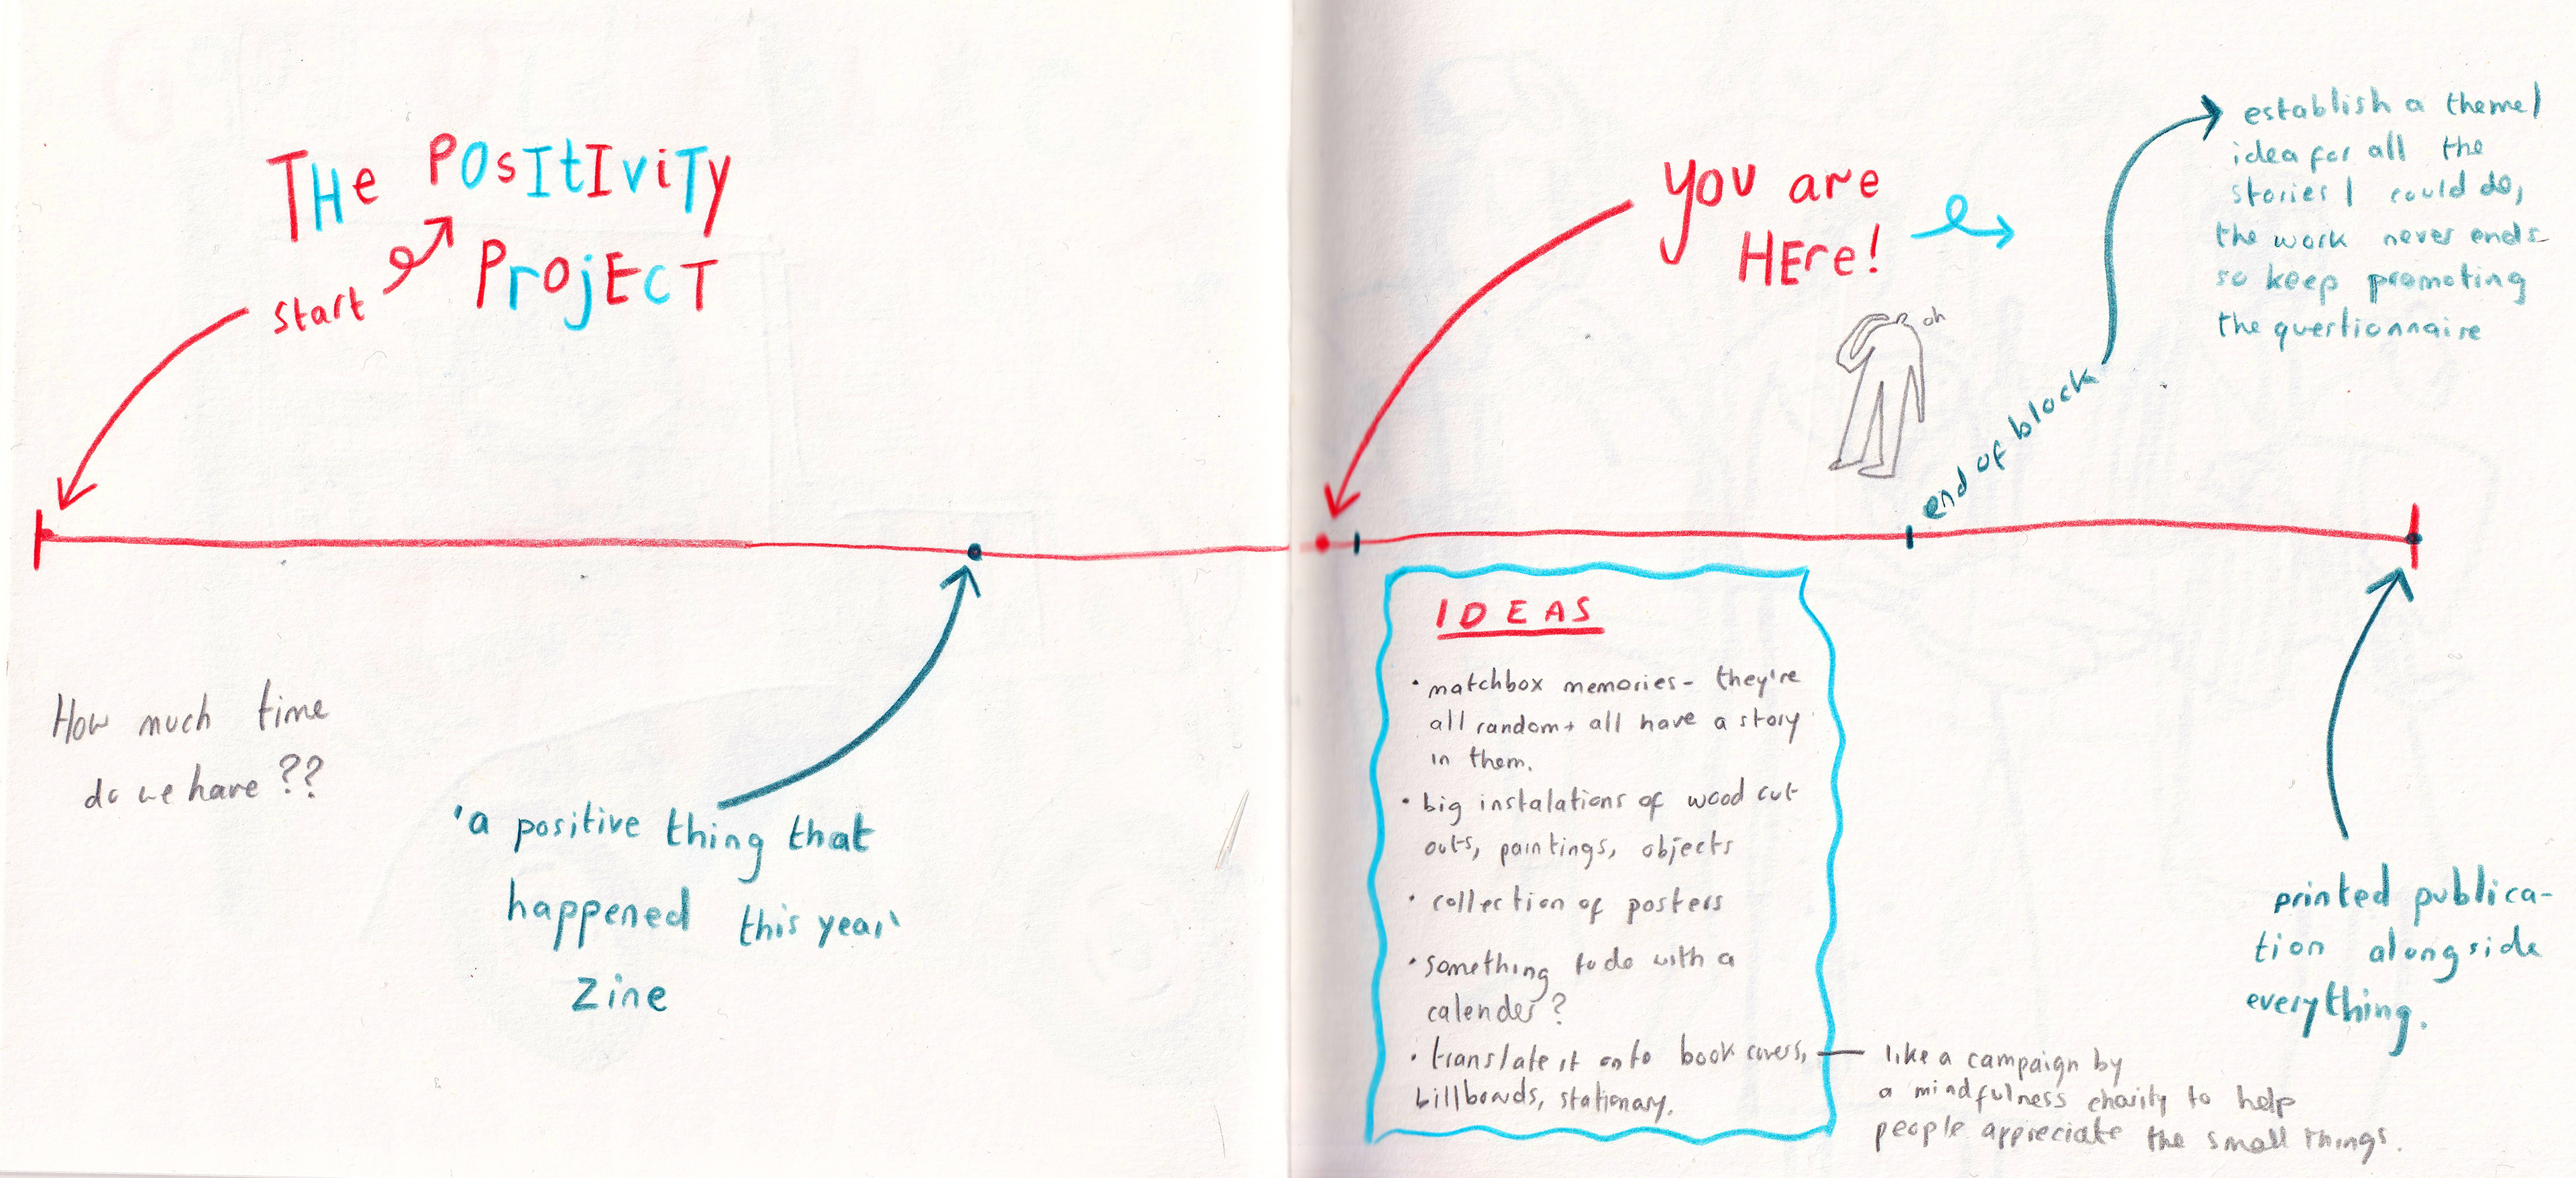 THe POsItIviTy
ProjEcT
start
How much time
do we have ??
'a positive thing that
happened this year'
zine
you are
HEre!
oh
end of block
establish a theme/
idea for all the
stories I could do,
the work never ends
so keep promoting
the questionnaire
IDEAS
• matchbox memories - they're
all random + all have a story
in them.
• big instalations of wood cut
outs, paintings, objects
• collection of posters
• something to do with a
calender?
• translate it onto book covers,
billboards, stationary.
— like a campaign by
a mindfulness charity to help
people appreciate the small things.
printed publica-
tion alongside
everything.